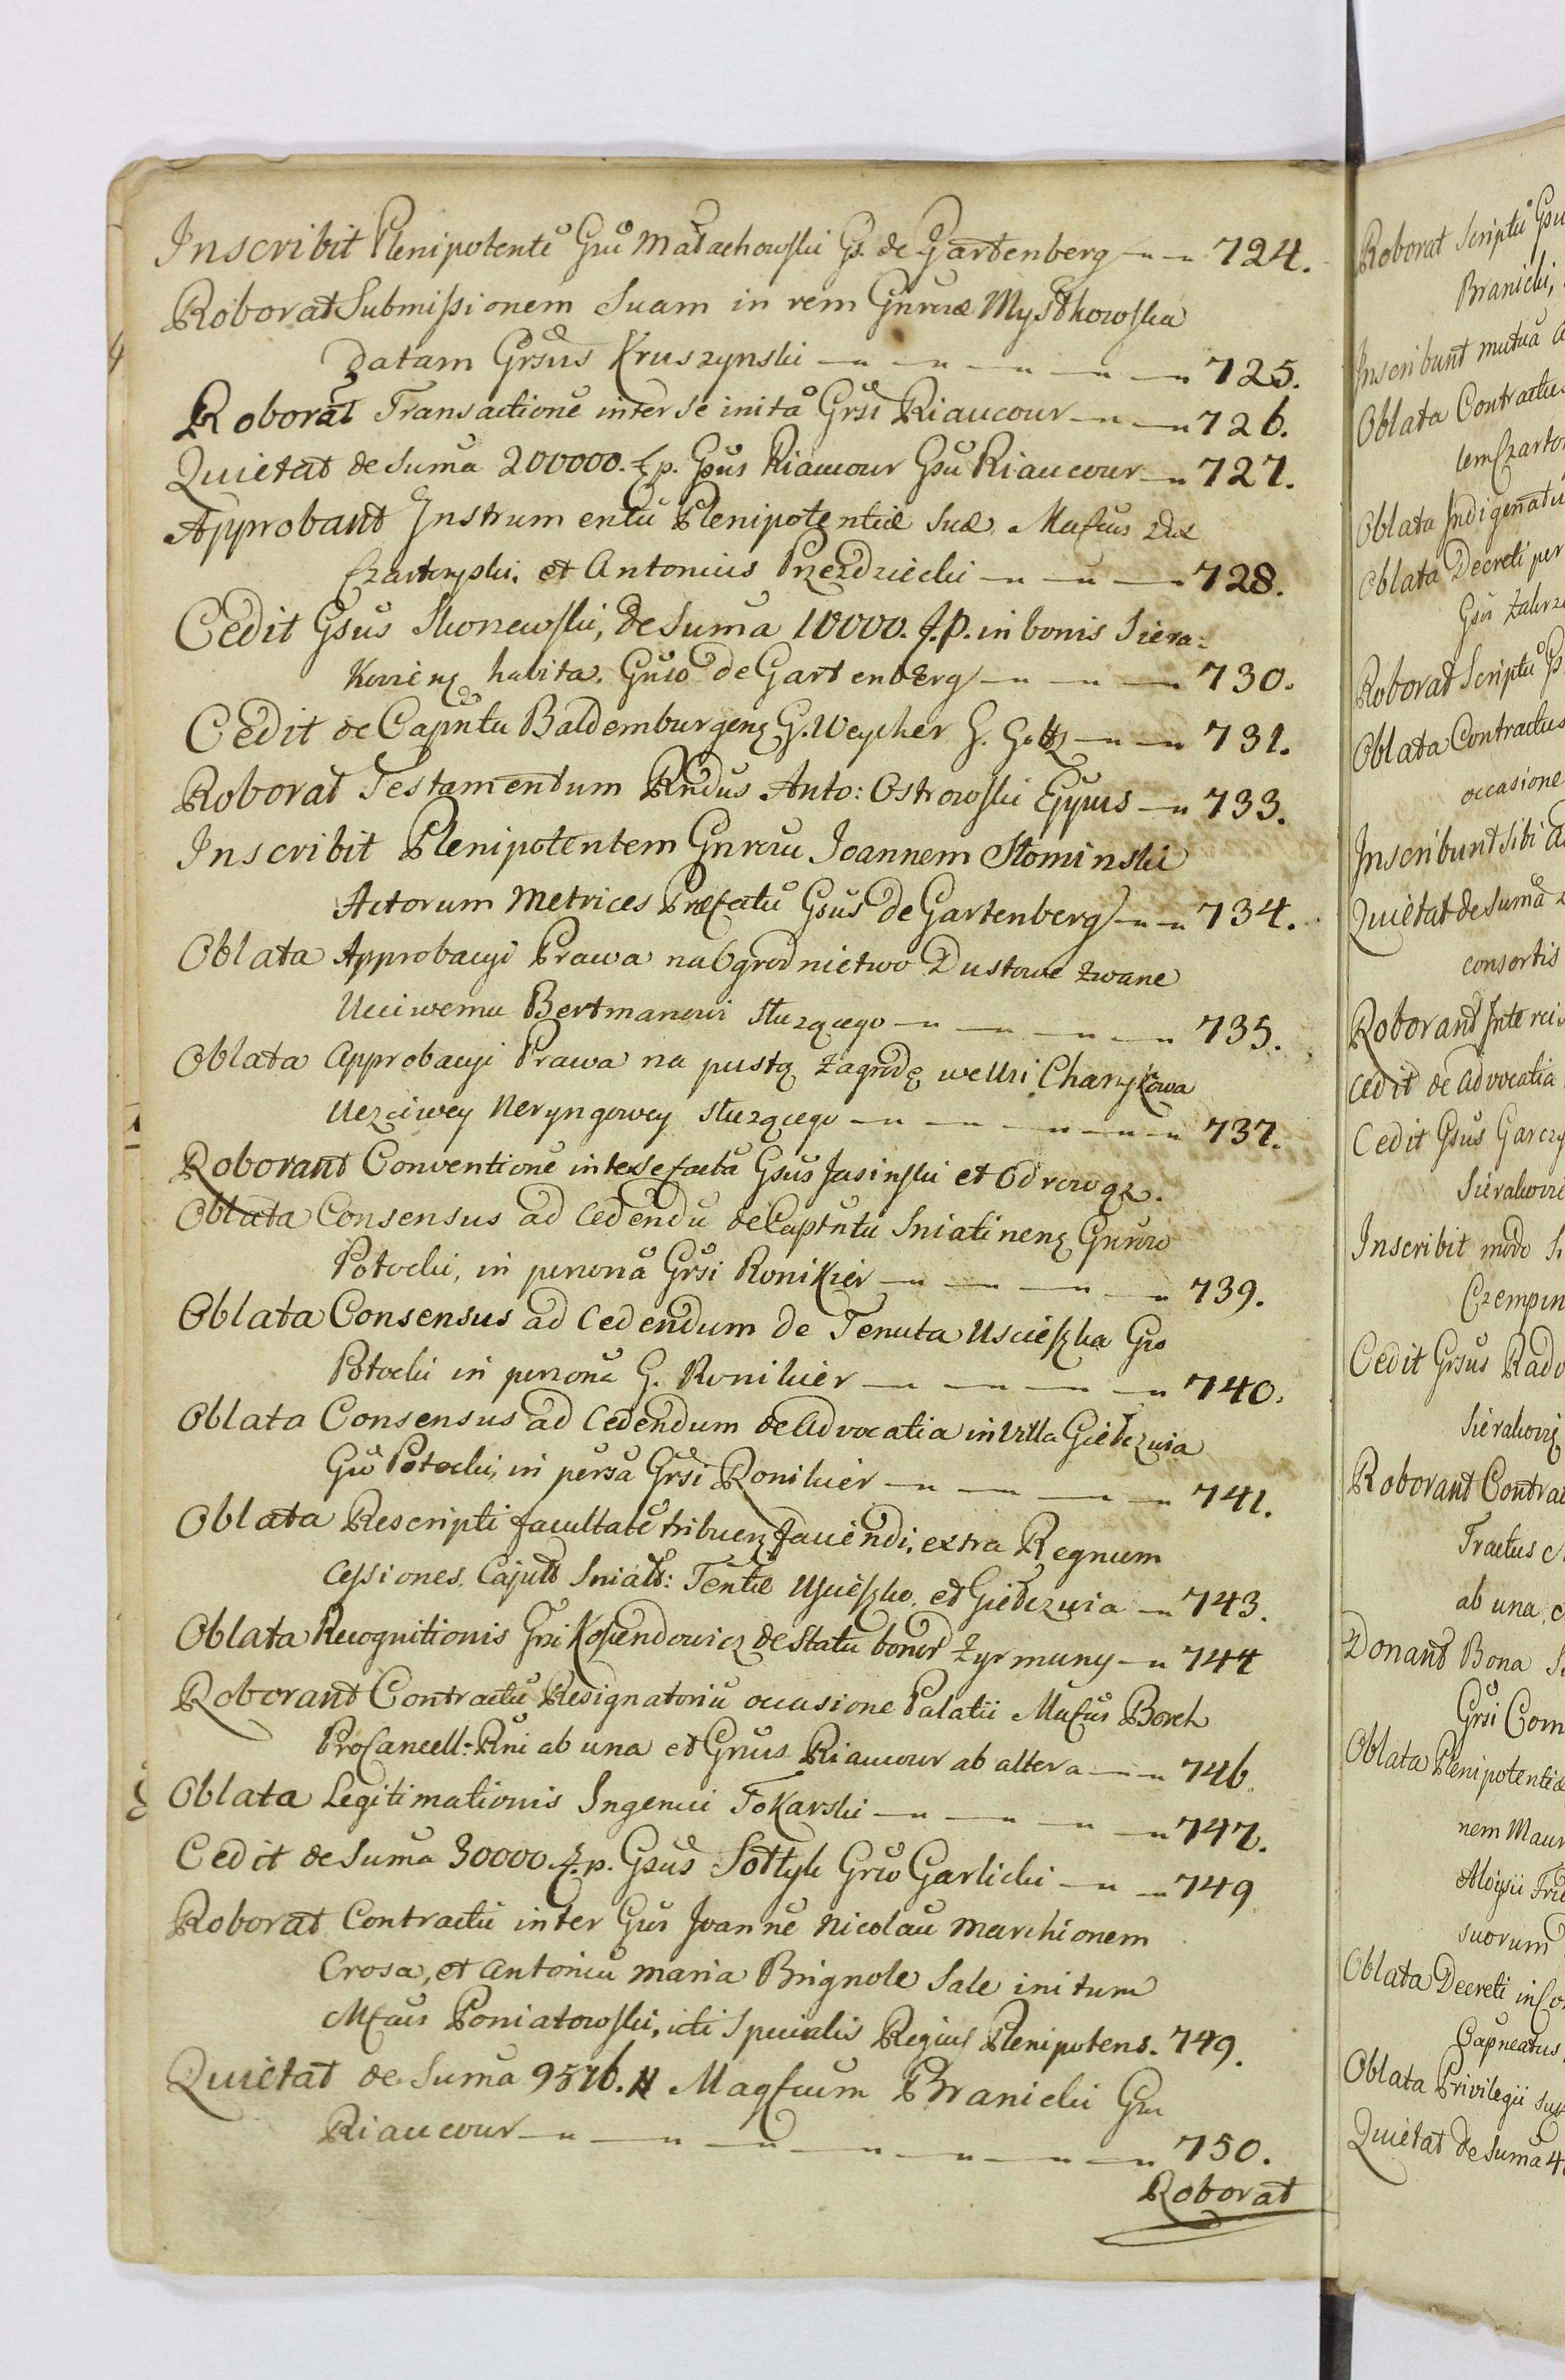 Inscribit Plenipotentē Gnū Małachowski Gs. de Gartenberg 724.
Roborat Submissionem Suam in rem Gnrosæ Mystkowska
Datam Grsus Kruszynski 725.
Roborat Transactionē inter se initā Grsi Riaucour 726.
Quietat de Suma 200000. f. p. Gsus Riaucour Gsu Riaucour 727.
Approbant Instrumentū Plenipotentiæ Suæ Mafcus Dux
Czartoryski, et Antonius Przezdziecki 728.
Cedit Gsus Skorzewski, de Suma 10000. f. p. in bonis Siera:
koviens habita. Gnso de Gartenberg 730.
Cedit de Capntu Baldemburgens G. Weycher G. Goltz 731.
Roborat Testamentum Rndus Anto: Ostrowski Eppus 733.
Inscribit Plenipotentem Gnrosu Joannem Słominski
Actorum Metrices Præfectū Gsus de Gartenberg 734.
Oblata Approbacyi Prawa na Ogrodnictwo Dustowe zwane
Ucciwemu Bertmanowi słuzącego 735.
Oblata Approbacyi Prawa na pustą zagrodę we Wsi Charzykowa
Uczciwey Neryngowey słuzącego 737.
Roborant Conventionē inter se factā Gsus Jasinski et Odrowąz.
Oblata Consensus ad Cedendū de Captntu Sniatinens Gnroso
Potocki, in personā Grsi Ronikier 739.
Oblata Consensus ad Cedendum de Tenuta Uscieszka Gso
Potocki in personā G. Ronikier 740.
Oblata Consensus ad Cedendum de Advocatia in Villa Giełczwia
Gso Potocki, in persā Grsi Ronikier 741.
Oblata Rescripti facultatē tribuens faciendi, extra Regnum
Cessiones Capntt Sniat: Tentæ Uscieszko, et Giełczwia 743.
Oblata Recognitionis Gsi Kossendowicz de Statu bonor Zyrmuny 744
Roborant Contractū Resignatoriū occasione Palatii Mafcus Borch
ProCancell: Rni ab una et Gnsus Riaucour ab altera 746.
Oblata Legitimationis Ingenui Tokarski 747.
Cedit de Suma 30000 f. p. Gsus Sołtyk Grso Garlicki 749
Roborat Contractū inter Gsos Joannē Nicolaū Marchionem
Crosa, et Antoniū Maria Brignole Sale initum
Mfcus Poniatowski, uti Specialis Regius Plenipotens. 749.
Quietat de Suma 9576. # Magfcum Branicki Gsu
Riaucour 750.
Roborat
Roborat Scriptū Gsu
Branicki,
Inscribunt mutuā
Oblata Contractus
lem Czarto
Oblata Indigenatū
Oblata Decreti per
Gsos Zakrze
Roborat Scriptū
Oblata Contractus
occasione
Inscribunt sibi
Quietat de Suma
consortis
Roborant Interci
Cedit de Advocatia
Cedit Gsus Garczy
Sierakovi
Inscribit modo
Czempin
Cedit Grsus Rado
Sierakovi
Roborant Contra
Tractus
ab una
Donant Bona
Grsi Com
Oblata Plenipotentiæ
nem Maur
Aloysii
suorum
Oblata Decreti in
Capneatus
Oblata Privilegii
Quietat de Suma